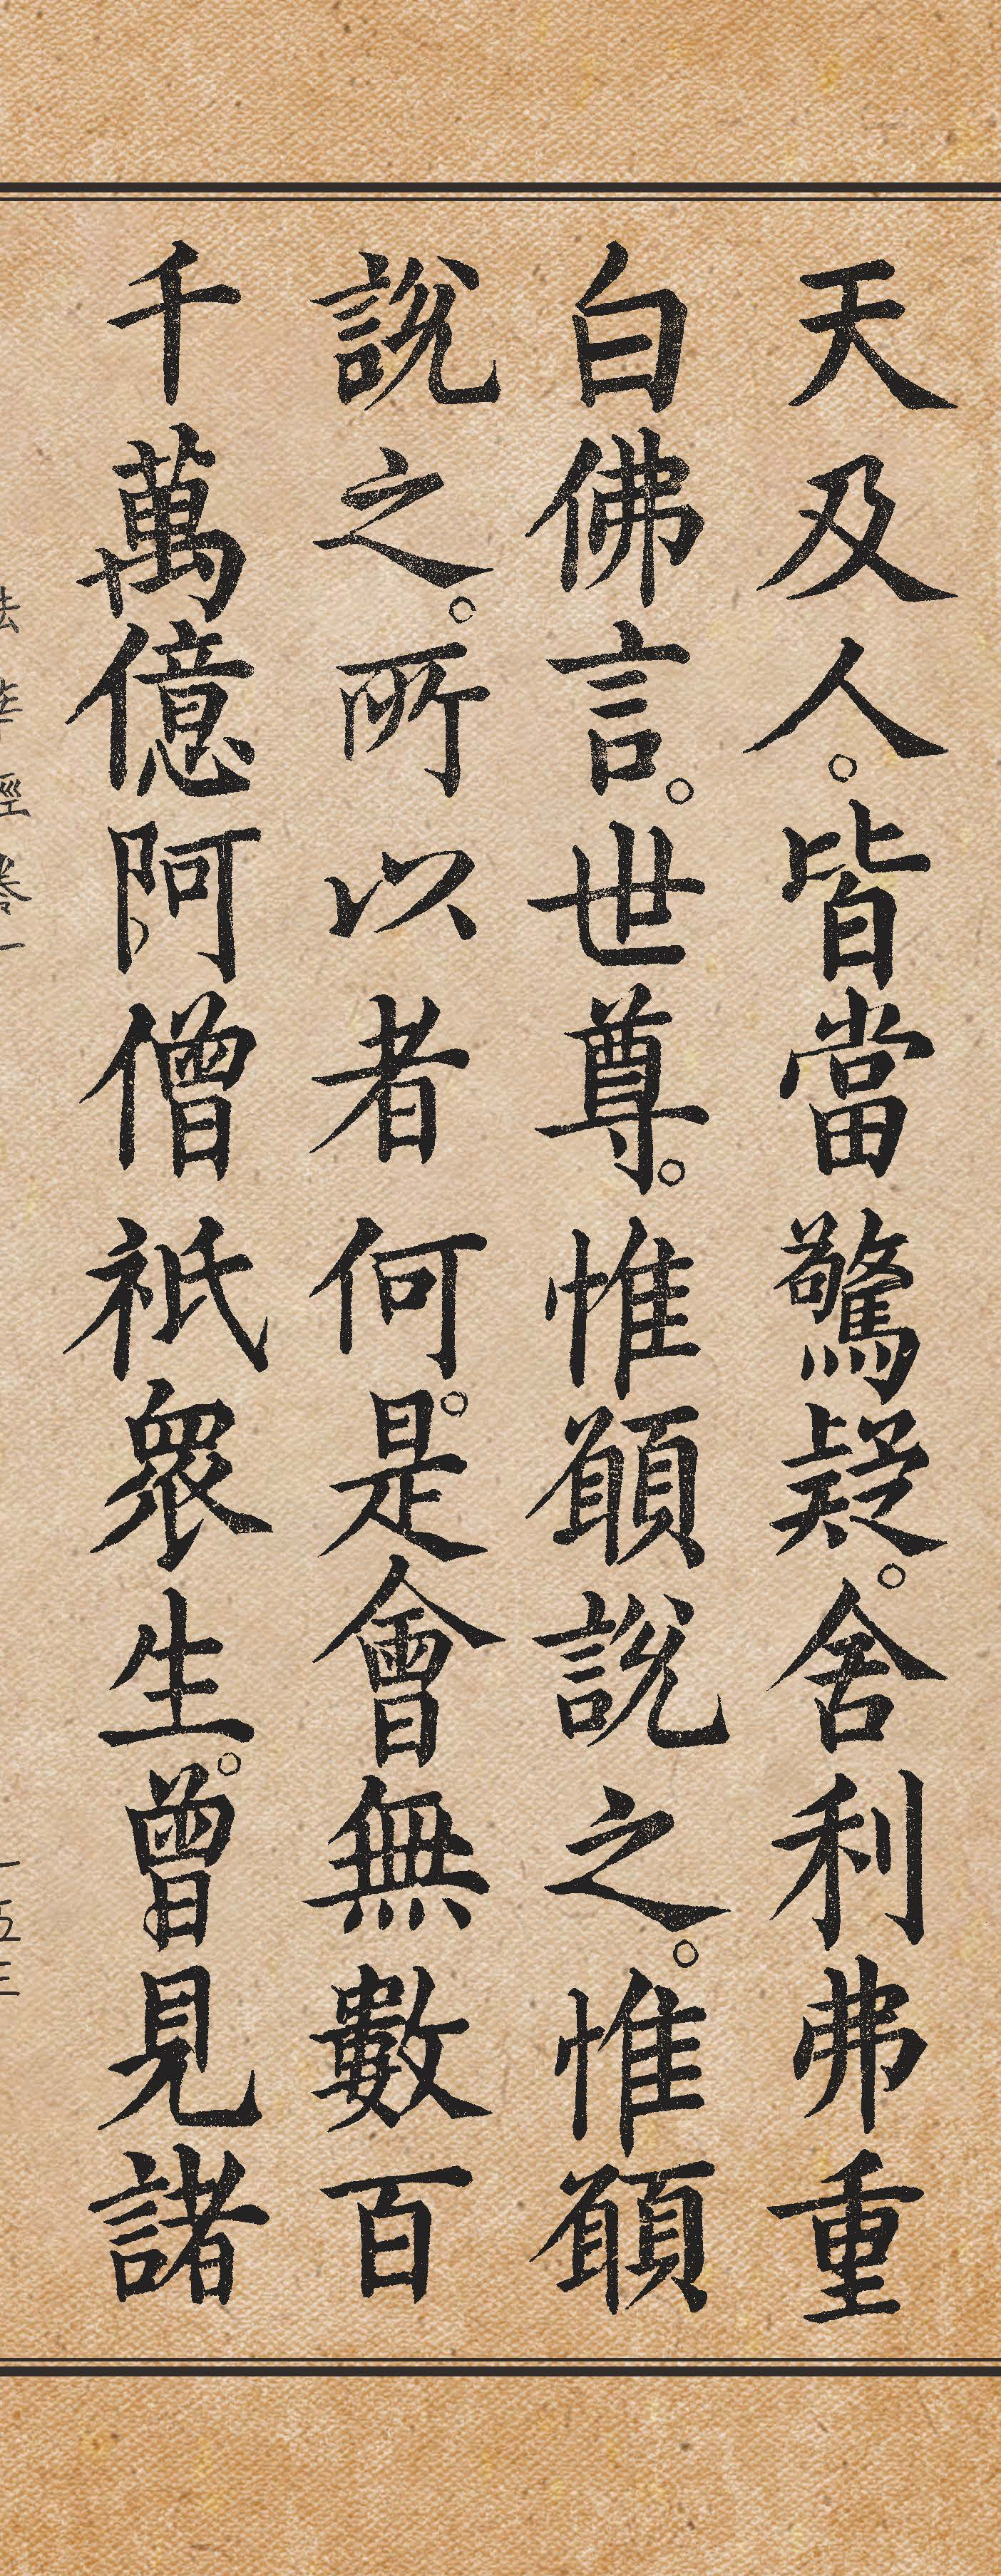 天及人。皆當驚疑。舍利弗重
白佛言。世尊。惟願說之。惟願
說之。所以者何。是會無數百
千萬億阿僧祇眾生。曾見諸
法華經卷一
一五三